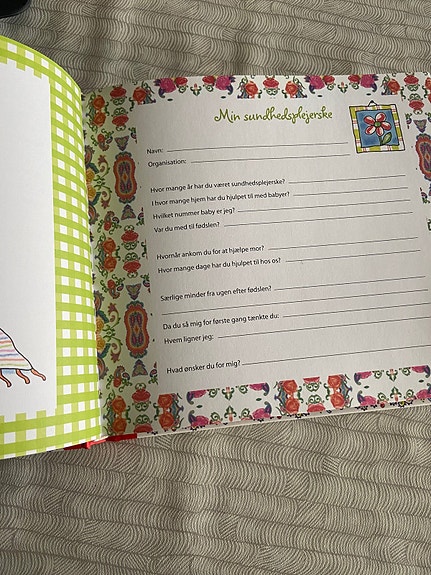 Min sundhedsplejerske
Navn:
Organisation:
Hvor mange år har du været sundhedsplejerske?
I hvor mange hjem har du hjulpet til med babyer?
Hvilket nummer baby er jeg?
Var du med til fødslen?
Hvornår ankom du for at hjælpe mor?
Hvor mange dage har du hjulpet til hos os?
Særlige minder fra ugen efter fødslen?
Da du så mig for første gang tænkte du:
Hvem ligner jeg:
Hvad ønsker du for mig?